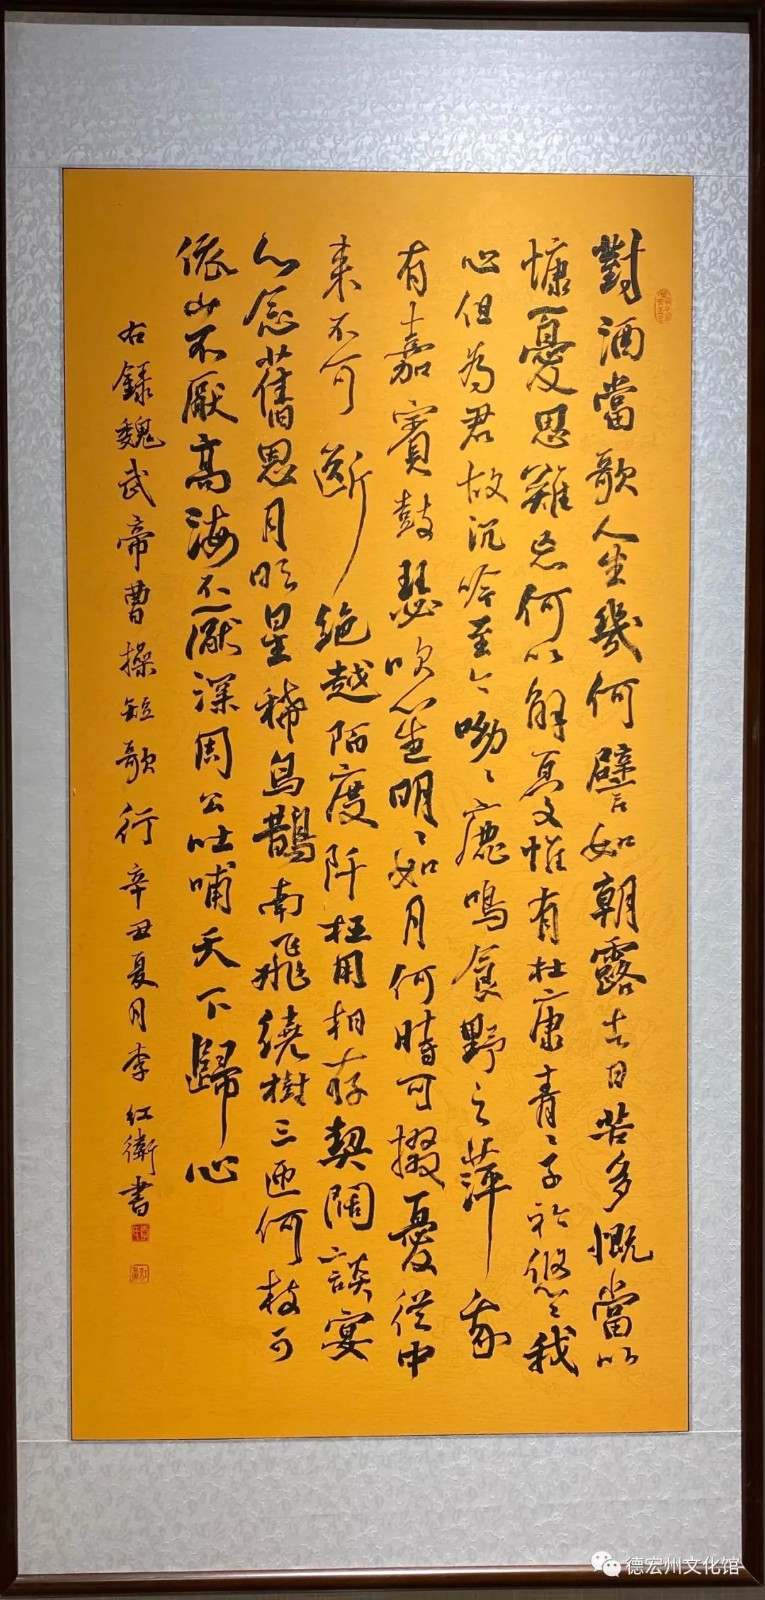 對酒當歌人生幾何譬如朝露去日苦多慨當以
慷憂思難忘何以解憂惟有杜康青〻子衿悠〻我
心但為君故沉吟至今呦〻鹿鳴食野之萍我
有嘉賓鼓瑟吹笙明〻如月何時可掇憂從中
来不可斷絶越陌度阡枉用相存契闊談宴
心念舊恩月明星稀烏鵲南飛繞樹三匝何枝可
依山不厭高海不厭深周公吐哺天下歸心
右錄魏武帝曹操短歌行辛丑夏月李红衛書
德宏州文化馆